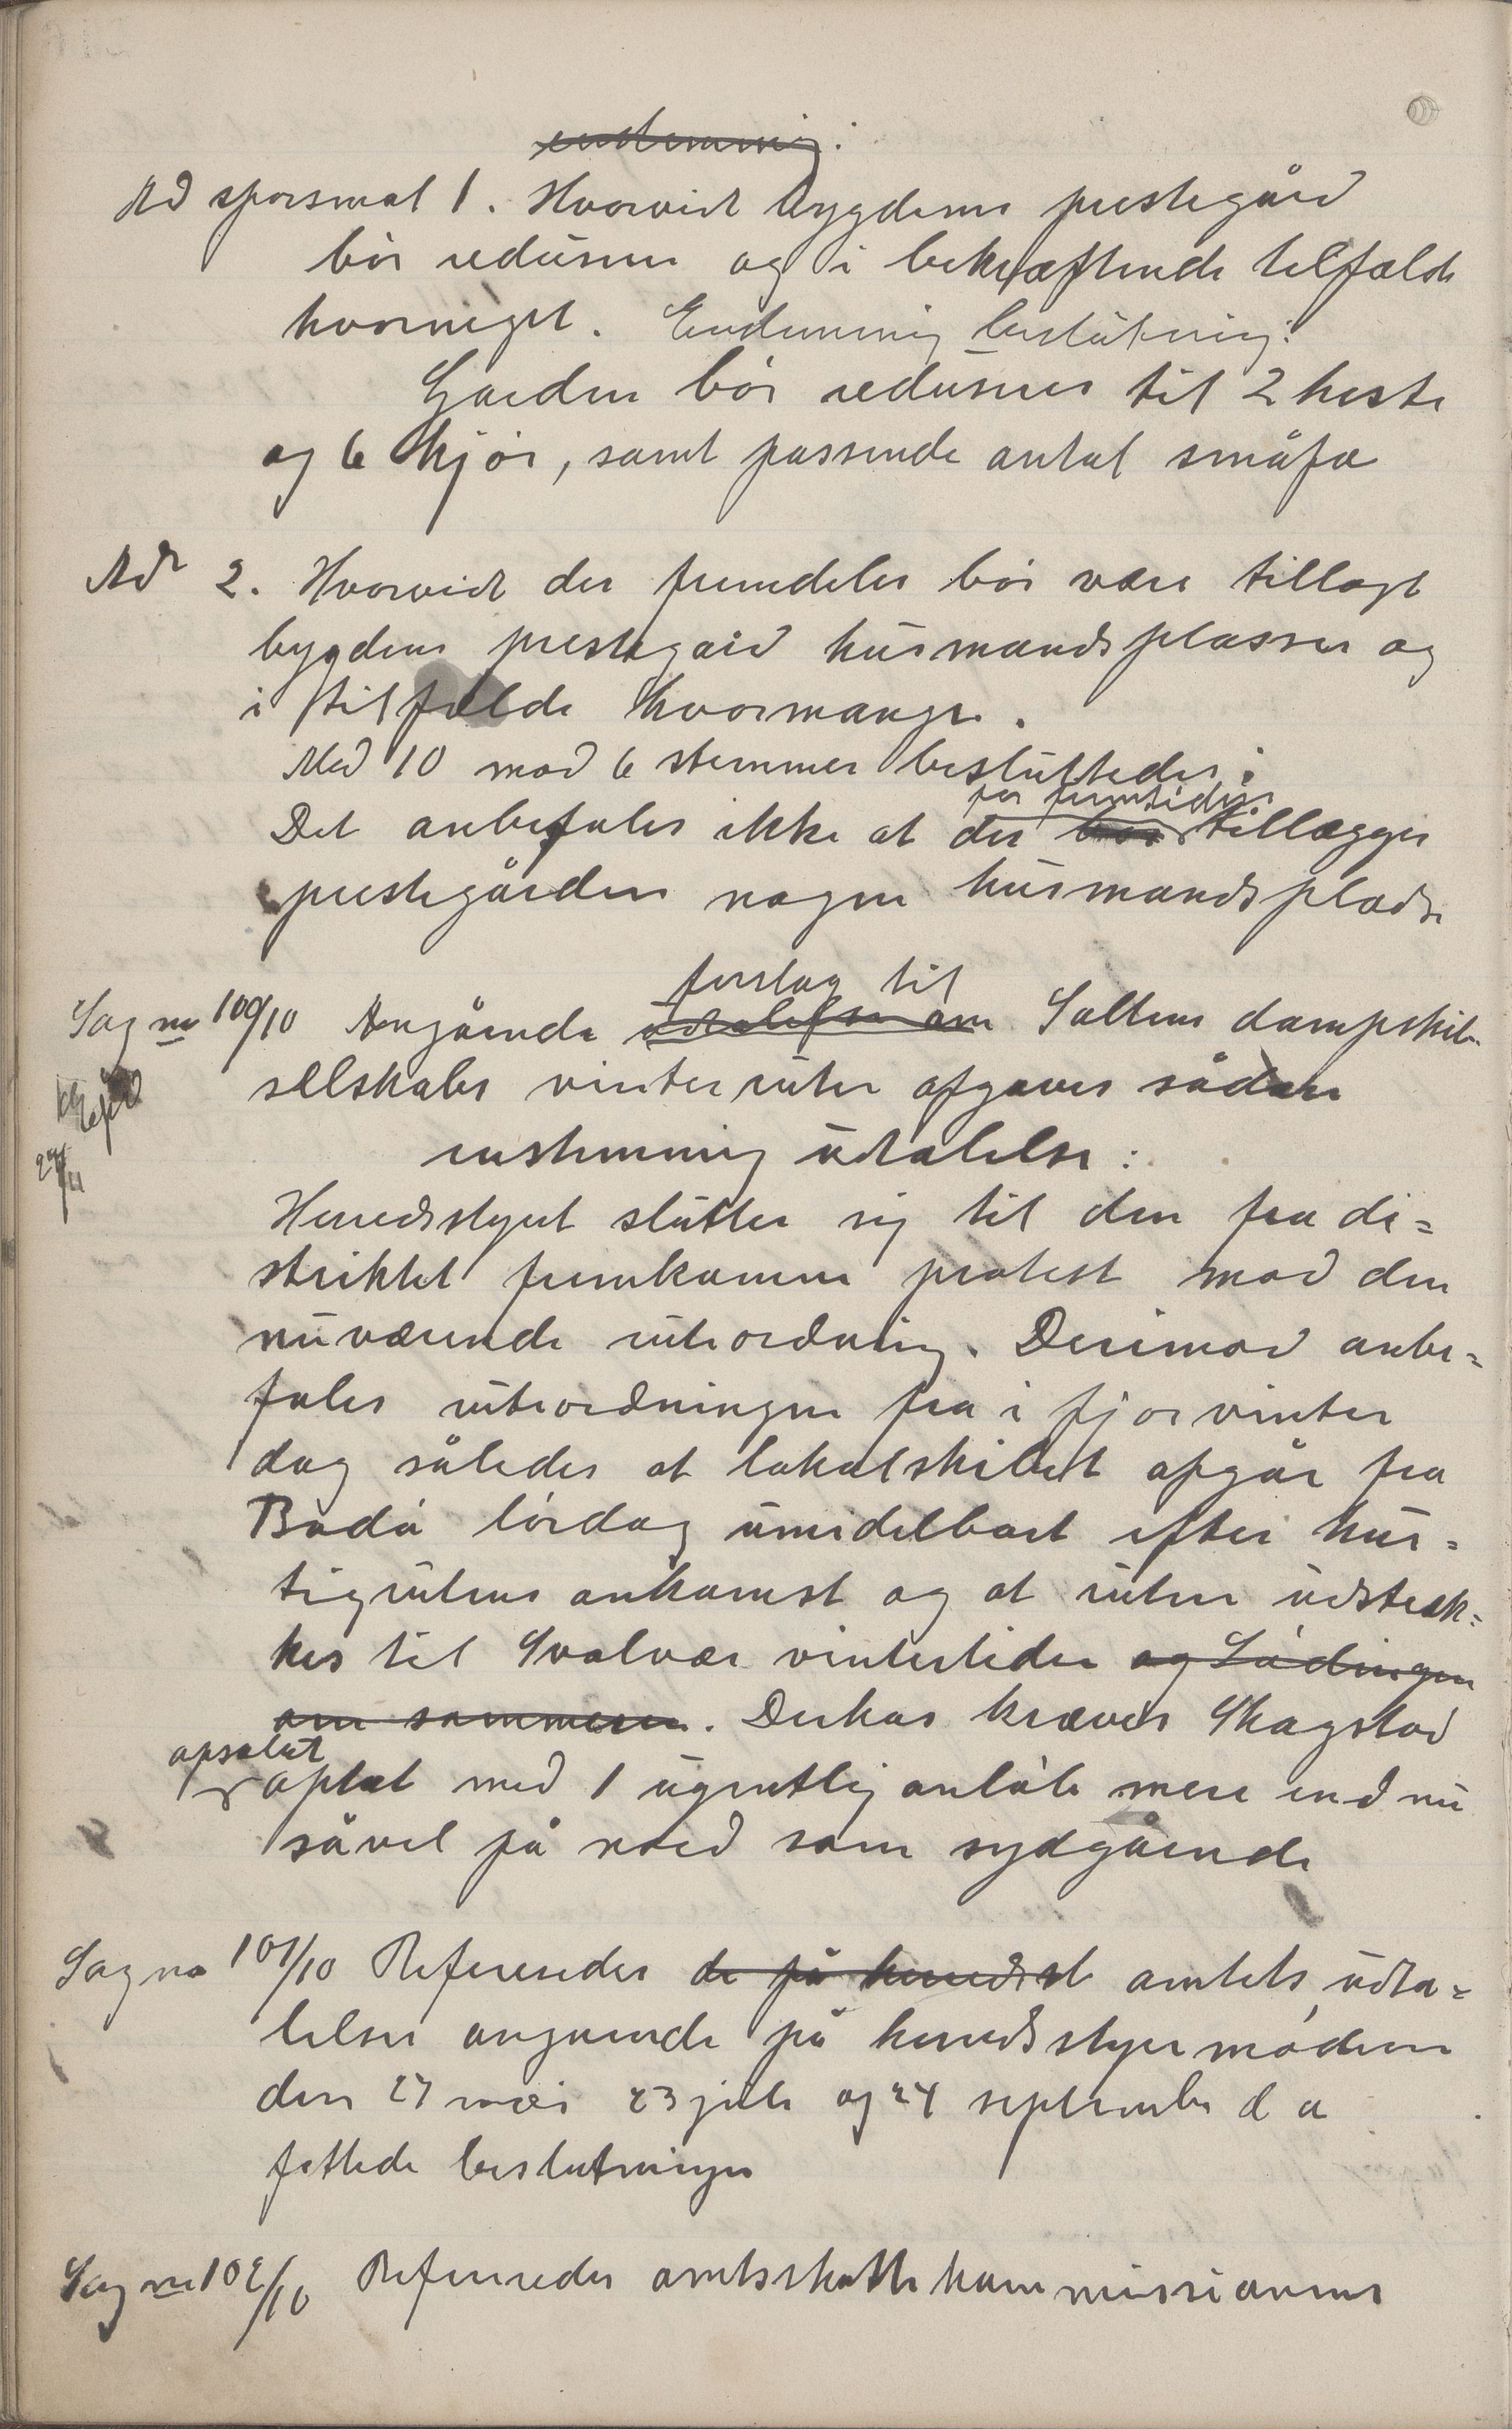 enstemmig:
Ad sporsmal 1. Hvorvidt bygdens prestegård
bør reduseres og i bekræftende tilfælde
hvormeget. Enstemmig beslutning:
Gaarden bør reduseres til 2 heste
og 6 kjør, samt passende antal småfæ
Ad 2. Hvorvidt der fremdeles bør være tillagt
bygdens prestegård husmandsplasser og
i tilfælde hvormange.
Med 10 mod 6 stemmer besluttedes:
for fremtiden
Det anbefales ikke at der bør tillægges
prestegården nogen husmandsplads
forslag til
Sag no 100/10 Angående udtalelse om Saltens dampskibs
selskabs vinterruter afgaves sådan
enstemmig udtalelse:
27/11
Herredsstyret slutter sig til den fra di=
striktet fremkomne protest mod den
nuværende ruteordning. Derimod anbe=
fales ruteordningen fra i fjor vinter
dog således at lokalskibet afgår fra
Bodø lørdag umidelbart efter hur=
tigrutens ankomst og at ruten udstræk=
kes til Svolvær vintertiden og Lødingen
om sommeren. Derhos kræves Skagstad
apsolut
oplat med 1 ugentlig anløb mere end nu
såvel på nord som sydgående
Sag no 101/10 Refereredes de på herredsst amtets udta=
lelser angaaende på herredsstyremøderne
den 27 mai 23 juli og 24 september d a
fattede beslutninger
Sag no 102/10 Refereredes amtsskattekommissionens